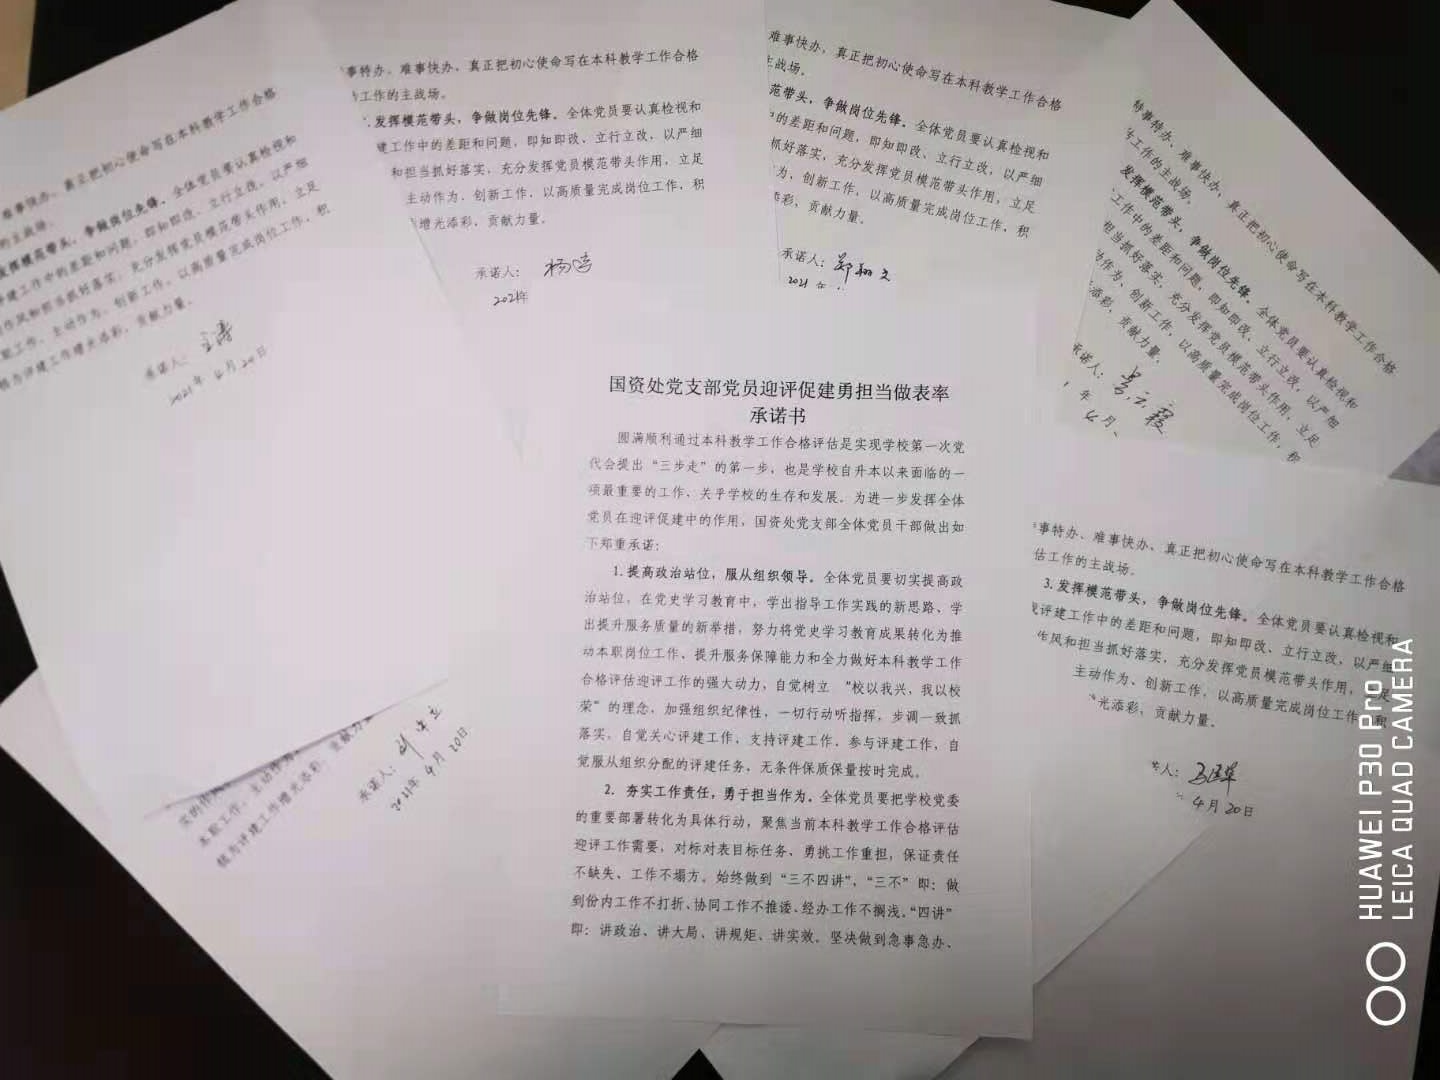 难事快办、真正把初心使命写在本科教学工作合格
的主战场。
发挥模范带头，争做岗位先锋。全体党员要认真检视和
评建工作中的差距和问题，即知即改、立行立改，以严细
作风和担当抓好落实，充分发挥党员模范带头作用，立足
职工作、主动作为、创新工作，以高质量完成岗位工作，积
极为评建工作增光添彩、贡献力量。
承诺人：
2021年4月20日
事特办、难事快办、真正把初心使命写在本科教学工作合格
工作的主战场。
发挥模范带头，争做岗位先锋。全体党员要认真检视和
建工作中的差距和问题，即知即改、立行立改，以严细
和担当抓好落实，充分发挥党员模范带头作用，立足
主动作为、创新工作，以高质量完成岗位工作，积
增光添彩，贡献力量。
承诺人：
2021年
难事快办，真正把初心使命写在本科教学工作合格
主战场。
范带头，争做岗位先锋。全体党员要认真检视和
中的差距和问题，即知即改、立行立改，以严细
抓好落实，充分发挥党员模范带头作用，立足
为、创新工作，以高质量完成岗位工作，积
添彩，贡献力量。
承诺人：郑翔文
2021年
事特办、难事快办、真正把初心使命写在本科教学工作合格
工作的主战场。
发挥模范带头，争做岗位先锋。全体党员要认真检视和
工作中的差距和问题，即知即改、立行立改，以严细
担当抓好落实，充分发挥党员模范带头作用，立足
动作为、创新工作，以高质量完成岗位工作，积
添彩，贡献力量。
承诺人：
年4月
国资处党支部党员迎评促建勇担当做表率
承诺书
圆满顺利通过本科教学工作合格评估是实现学校第一次党
代会提出“三步走”的第一步，也是学校自升本以来面临的一
项最重要的工作、关乎学校的生存和发展。为进一步发挥全体
党员在迎评促建中的作用，国资处党支部全体党员干部做出如
下郑重承诺：
1.提高政治站位，服从组织领导。全体党员要切实提高政
治站位，在党史学习教育中，学出指导工作实践的新思路、学
出提升服务质量的新举措，努力将党史学习教育成果转化为推
动本职岗位工作、提升服务保障能力和全力做好本科教学工作
合格评估迎评工作的强大动力，自觉树立 “校以我兴，我以校
荣”的理念，加强组织纪律性，一切行动听指挥，步调一致抓
落实，自觉关心评建工作、支持评建工作、参与评建工作，自
觉服从组织分配的评建任务，无条件保质保量按时完成。
2. 夯实工作责任，勇于担当作为。全体党员要把学校党委
的重要部署转化为具体行动，聚焦当前本科教学工作合格评估
迎评工作需要，对标对表目标任务、勇挑工作重担，保证责任
不缺失、工作不塌方。始终做到“三不四讲”，“三不”即：做
到份内工作不打折、协同工作不推诿、经办工作不搁浅。“四讲”
即：讲政治、讲大局、讲规矩、讲实效。坚决做到急事急办、
事特办、难事快办、真正把初心使命写在本科教学工作合格
估工作的主战场。
3.发挥模范带头，争做岗位先锋。全体党员要认真检视和
评建工作中的差距和问题，即知即改、立行立改，以严细
作风和担当抓好落实，充分发挥党员模范带头作用，立足
主动作为、创新工作，以高质量完成岗位工作，积
光添彩、贡献力量。
人：
4月20日
实的作风
本职工作、主动作为
极为评建工作增光添彩、贡献力
承诺人：
2021年4月20日
HUAWEI P30 Pro
LEICA QUAD CAMERA